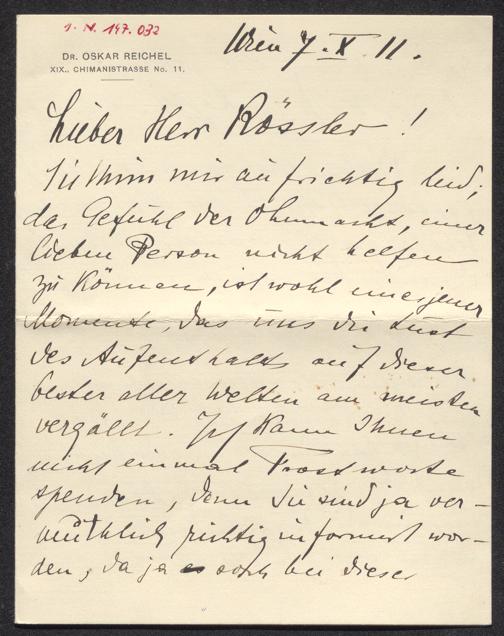 I. N. 147.032
DR. OSKAR REICHEL
XIX., CHIMANISTRASSE No. 11.
Wien 7. X. 11.
Lieber Herr Rössler!
Sie thun mir aufrichtig leid;
das Gefühl der Ohnmacht, einer
lieben Person nicht helfen
zu können, ist wohl eines jener
Momente, das uns die Lust
des Aufenthalts auf dieser
bester aller Welten am meisten
vergällt. Ich kann Ihnen
nicht einmal Trostworte
spenden, denn Sie sind ja ver-
muthlich richtig informirt wor-
den, da ja es doch bei dieser